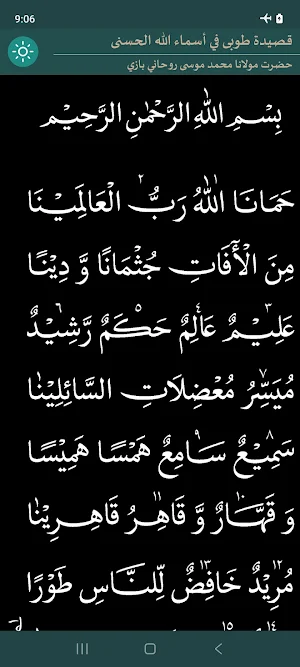 9:06
قصيدة طوبى في أسماء الله الحسنى
حضرت مولانا محمد موسى روحاني بازي
بِسْمِ اللهِ الرَّحْمٰنِ الرَّحِيْمِ
حَمَانَا اللهُ رَبُّ ٢ الْعَالَمِيْنَا
مِنَ الْأٰفَاتِ جُثْمَانًا وَّ دِيْنًا
عَلِيْمٌ ٣ عَالِمٌ ٤ حَكَمٌ ٥ رَّشِيْدٌ ٦
مُيَسِّرُ ٧ مُعْضِلَاتِ السَّائِلِيْنَا
سَمِيْعٌ ٨ سَامِعٌ ٩ هَمْسًا هَمِيْسًا
وَ قَهَّارٌ ١٠ وَّ قَاهِرُ ١١ قَاهِرِيْنَا
مُرِيْدٌ ١٢ خَافِضٌ ١٣ لِّلنَّاسِ طَوْرًا
١٤ ١٥